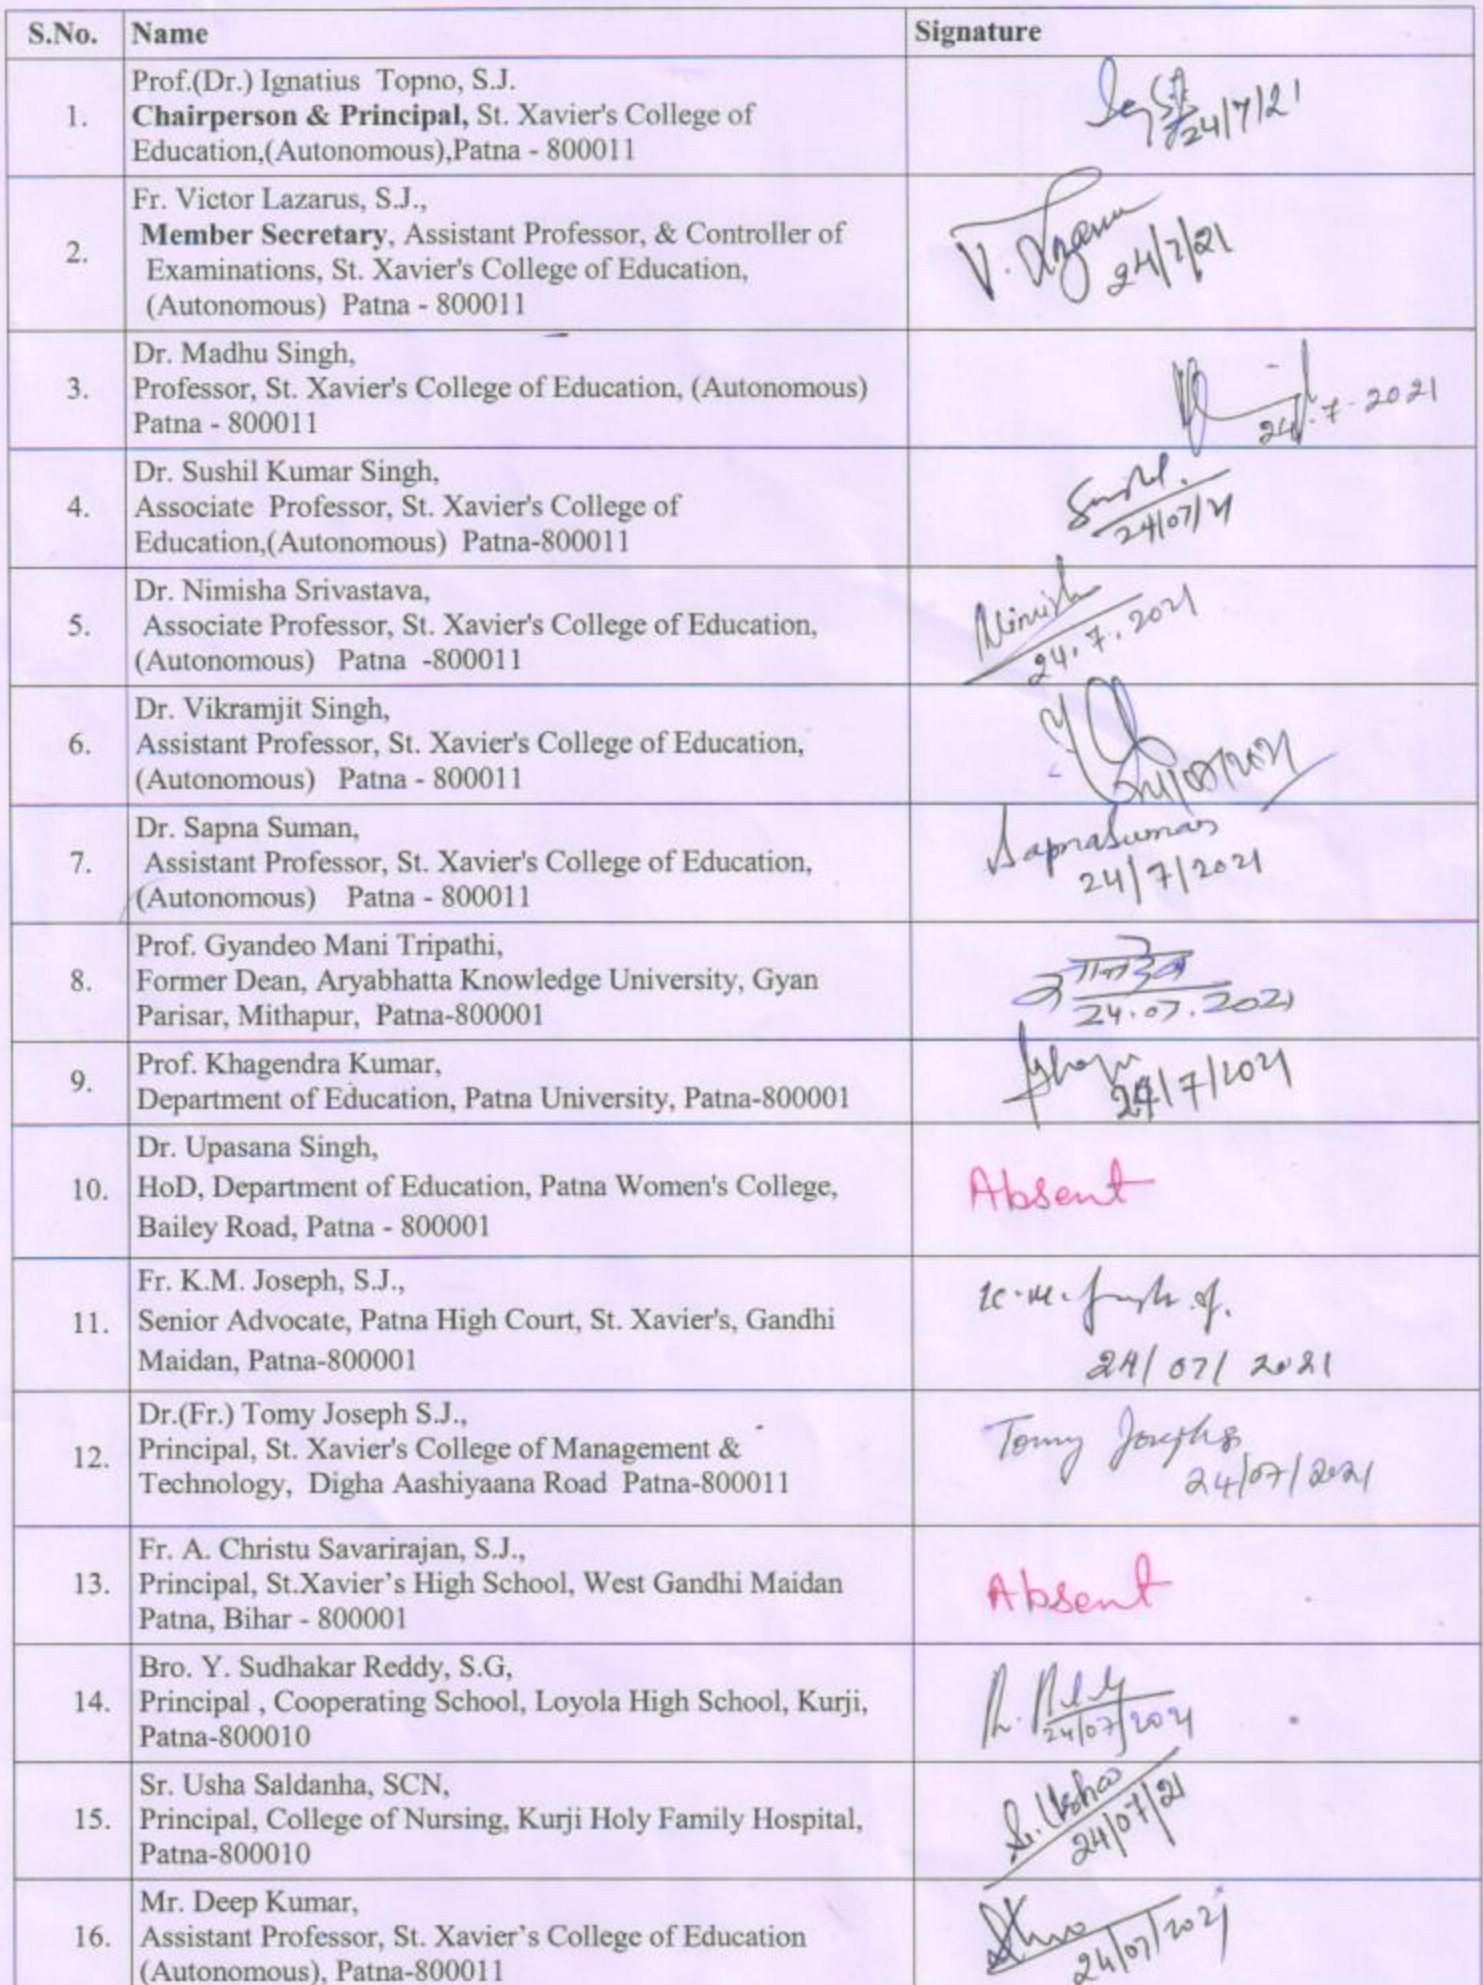 S.No. Name Signature
Prof.(Dr.) Ignatius Topno, S.J.
1. Chairperson & Principal, St. Xavier's College of
Education,(Autonomous),Patna - 800011
24/7/21
Fr. Victor Lazarus, S.J.,
Member Secretary, Assistant Professor, & Controller of
2.
Examinations, St. Xavier's College of Education,
(Autonomous) Patna - 800011
V. Lazarus
24/7/21
Dr. Madhu Singh,
3. Professor, St. Xavier's College of Education, (Autonomous)
Patna - 800011
24.7.2021
Dr. Sushil Kumar Singh,
4. Associate Professor, St. Xavier's College of
Education,(Autonomous) Patna-800011
Sushil.
24/07/21
Dr. Nimisha Srivastava,
5. Associate Professor, St. Xavier's College of Education,
(Autonomous) Patna -800011
Nimisha
24.7.2021
Dr. Vikramjit Singh,
6. Assistant Professor, St. Xavier's College of Education,
(Autonomous) Patna - 800011
Dr. Sapna Suman,
7. Assistant Professor, St. Xavier's College of Education,
(Autonomous) Patna - 800011
Sapna Suman
24/7/2021
Prof. Gyandeo Mani Tripathi,
8. Former Dean, Aryabhatta Knowledge University, Gyan
Parisar, Mithapur, Patna-800001
24.07.2021
Prof. Khagendra Kumar,
9.
Department of Education, Patna University, Patna-800001
24/7/2021
Dr. Upasana Singh,
10. HoD, Department of Education, Patna Women's College,
Bailey Road, Patna - 800001
Absent
Fr. K.M. Joseph, S.J.,
11. Senior Advocate, Patna High Court, St. Xavier's, Gandhi
Maidan, Patna-800001
K.M. Joseph
24/07/2021
Dr.(Fr.) Tomy Joseph S.J.,
12. Principal, St. Xavier's College of Management &
Technology, Digha Aashiyaana Road Patna-800011
Tomy Joseph
24/07/2021
Fr. A. Christu Savarirajan, S.J.,
13. Principal, St.Xavier’s High School, West Gandhi Maidan
Patna, Bihar - 800001
Absent
Bro. Y. Sudhakar Reddy, S.G,
14. Principal , Cooperating School, Loyola High School, Kurji,
Patna-800010
24/07/2021
Sr. Usha Saldanha, SCN,
15. Principal, College of Nursing, Kurji Holy Family Hospital,
Patna-800010
Sr. Usha
24/07/21
Mr. Deep Kumar,
16. Assistant Professor, St. Xavier’s College of Education
(Autonomous), Patna-800011
24/07/2021